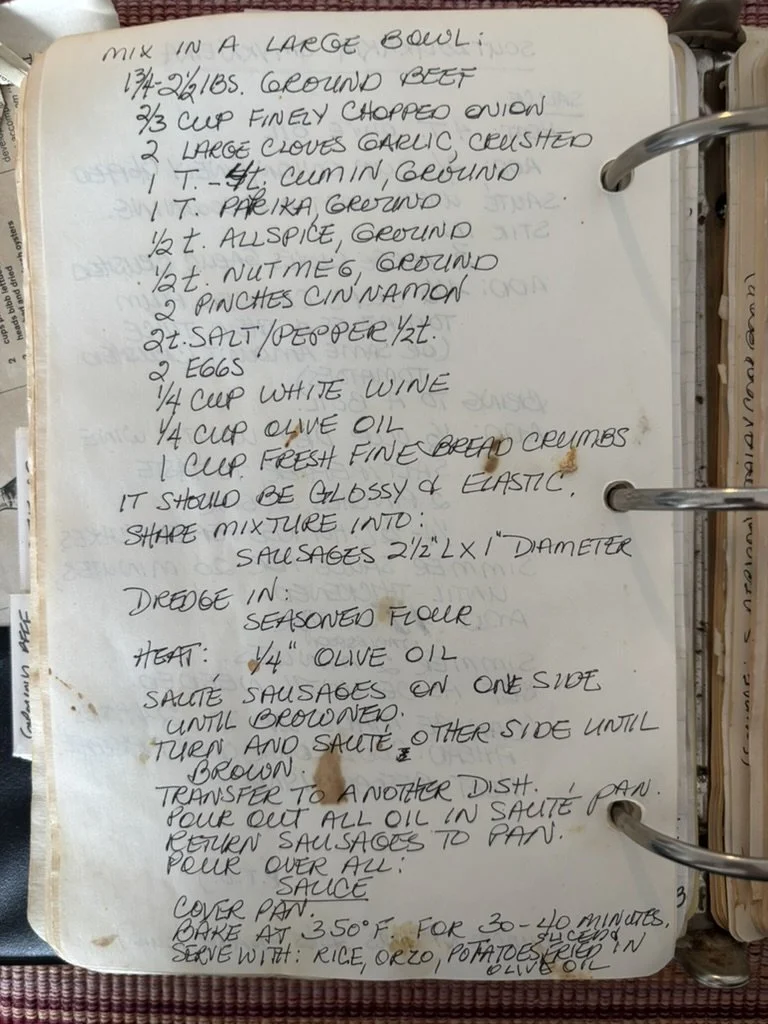 MIX IN A LARGE BOWL:
1 3/4-2 1/2 LBS. GROUND BEEF
2/3 CUP FINELY CHOPPED ONION
2 LARGE CLOVES GARLIC, CRUSHED
1 T. - t. CUMIN, GROUND
1 T. PARIKA, GROUND
1/2 t. ALLSPICE, GROUND
1/2 t. NUTMEG, GROUND
2 PINCHES CINNAMON
2t. SALT/PEPPER 1/2t.
2 EGGS
1/4 CUP WHITE WINE
1/4 CUP OLIVE OIL
1 CUP FRESH FINE BREAD CRUMBS
IT SHOULD BE GLOSSY & ELASTIC.
SHAPE MIXTURE INTO:
SAUSAGES 2 1/2" L X 1" DIAMETER
DREDGE IN:
SEASONED FLOUR
HEAT: 1/4" OLIVE OIL
SAUTÉ SAUSAGES ON ONE SIDE
UNTIL BROWNED.
TURN AND SAUTÉ OTHER SIDE UNTIL
BROWN.
TRANSFER TO ANOTHER DISH.
POUR OUT ALL OIL IN SAUTÉ PAN.
RETURN SAUSAGES TO PAN.
POUR OVER ALL:
SAUCE
COVER PAN.
BAKE AT 350°F. FOR 30-40 MINUTES.
SERVE WITH: RICE, ORZO, POTATOES SLICED & FRIED IN
OLIVE OIL
3